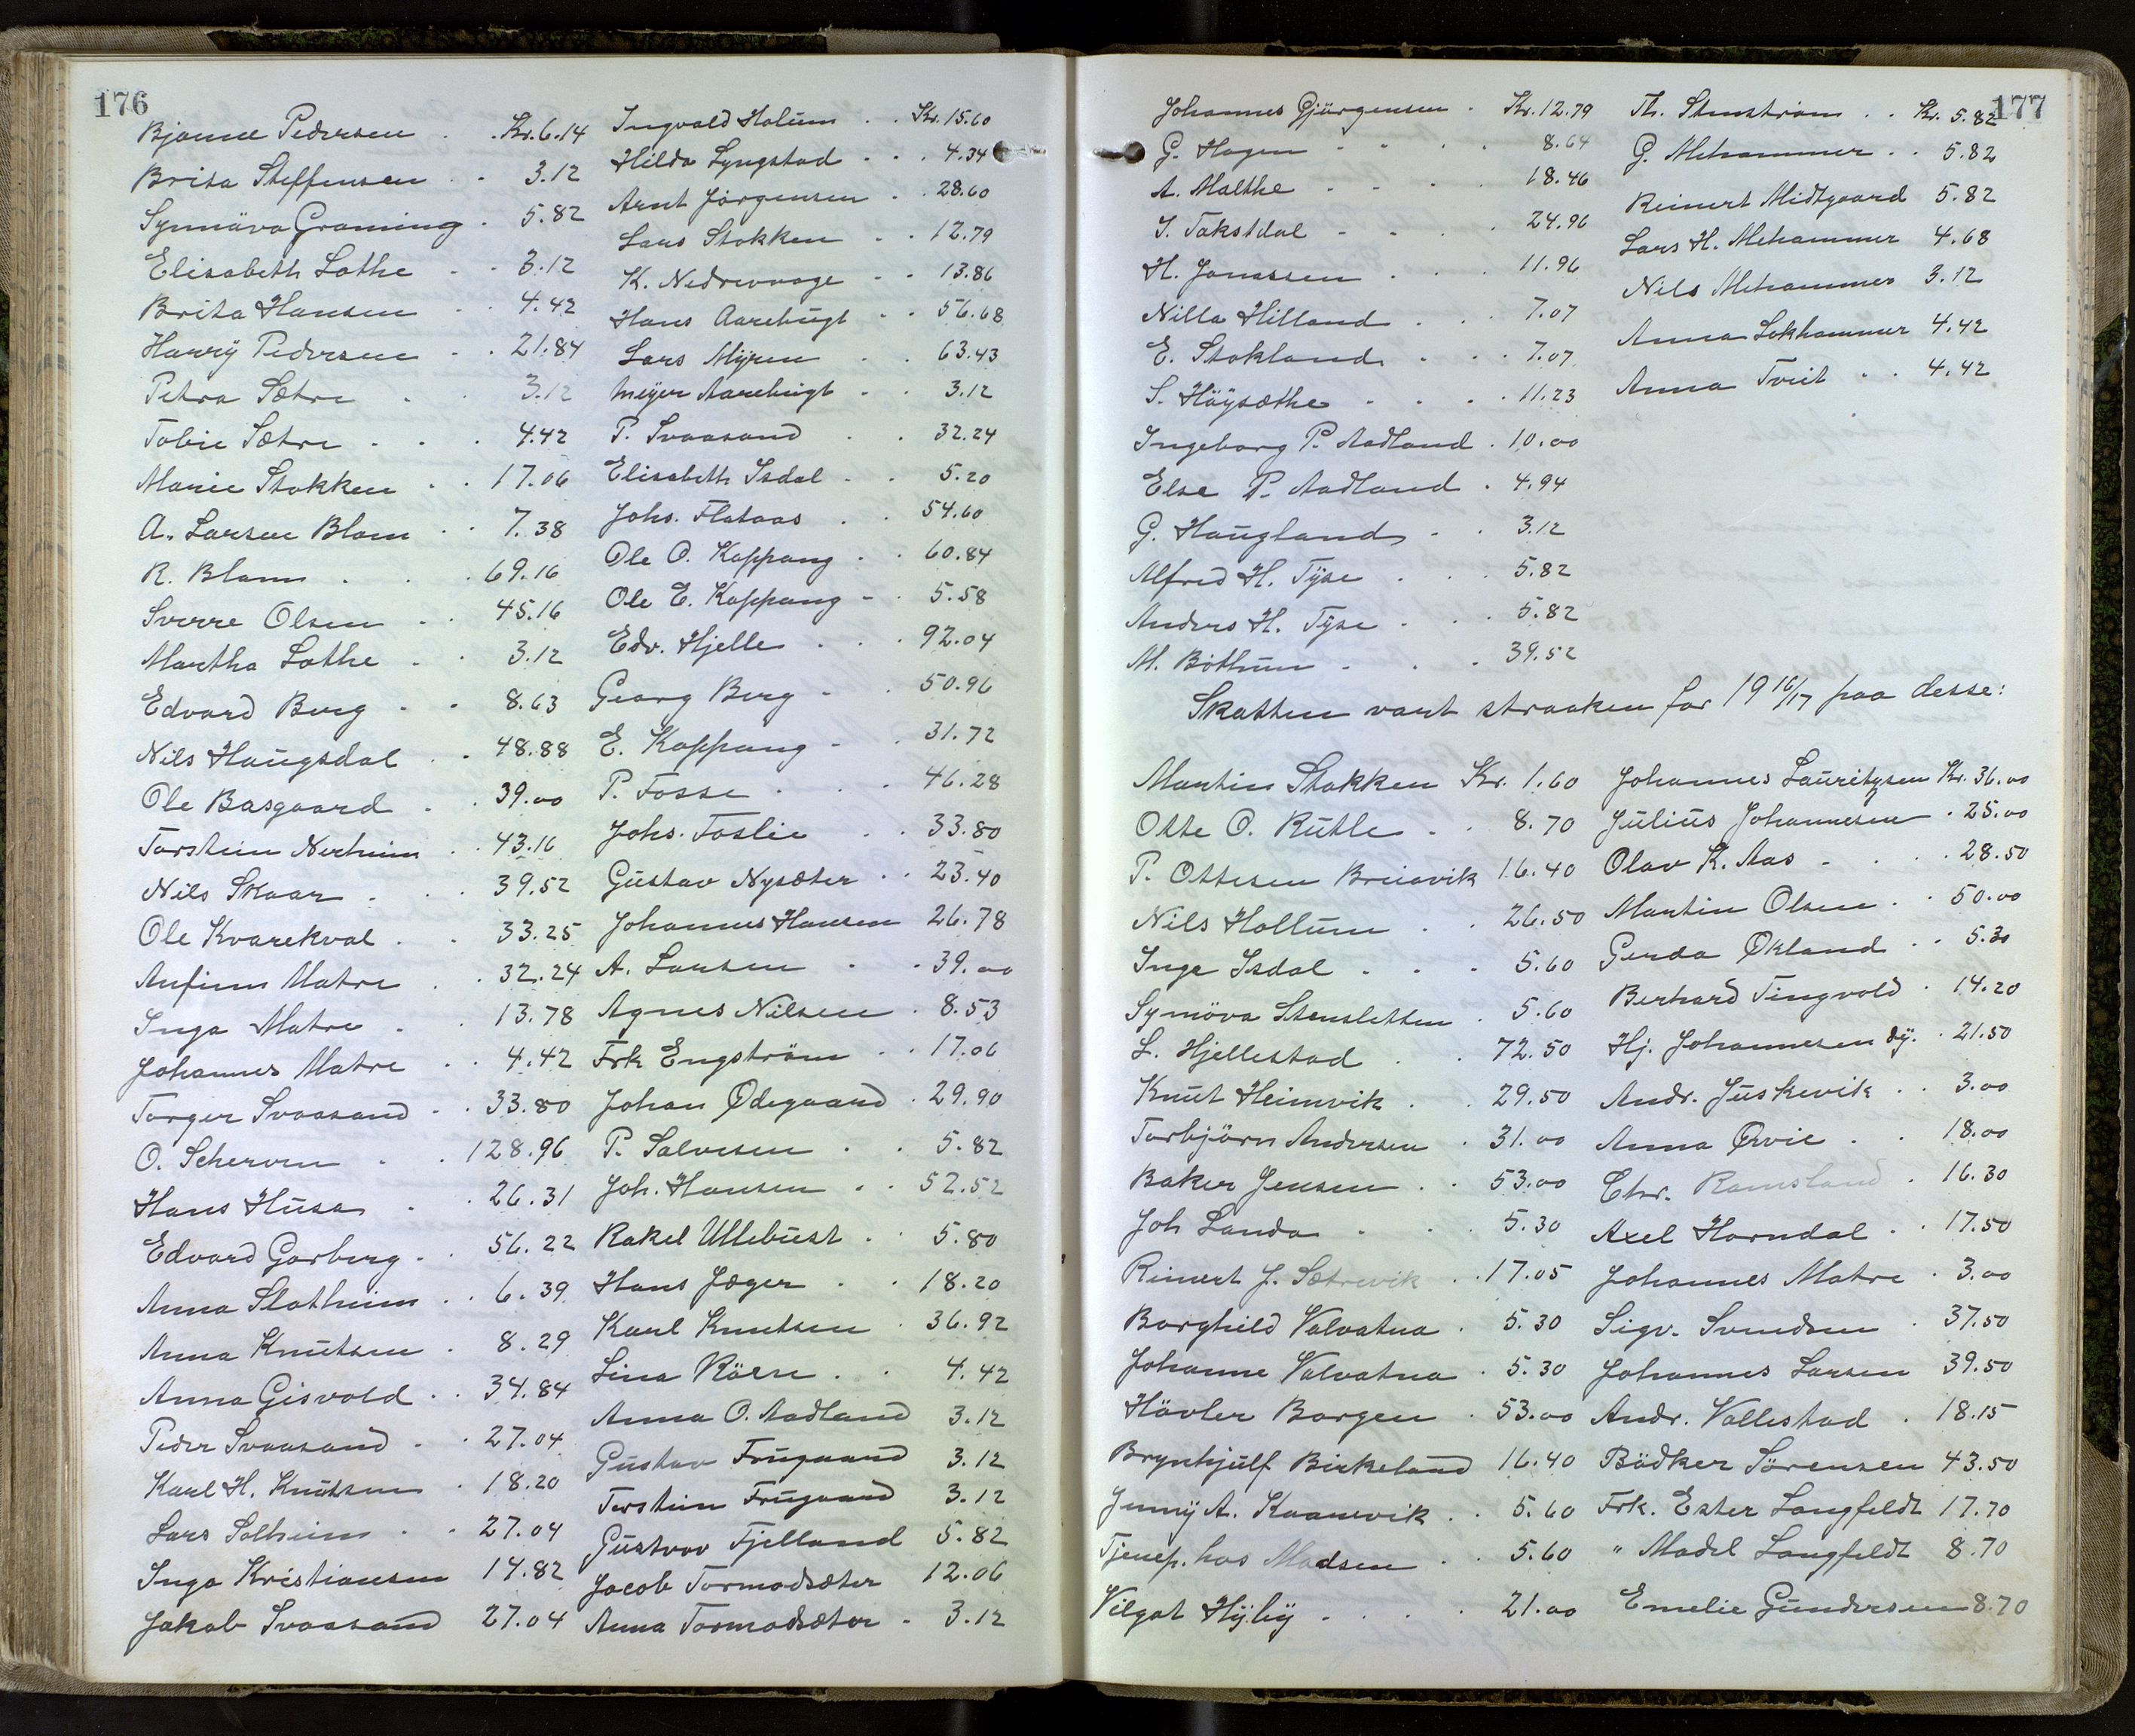 176
Bjarne Pedersen . . Kr. 6.14
Brita Steffensen . . 3.12
Synnäva Graming . 5.82
Elisabeth Lothe . . 3.12
Brita Hansen . . 4.42
Harry Pedersen . . 21.84
Petra Sætre . . 3.12
Tobie Sætre . . . 4.42
Marie Stokken . . 17.06
A. Larsen Blom . . 7.38
R. Blom . . . 69.16
Sverre Olsen . . 45.16
Martha Lothe . . 3.12
Edvard Berg . . 8.63
Nils Haugsdal . . 48.88
Ole Basgaard . . 39.00
Torstein Nerheim . . 43.16
Nils Skaar . . . 39.52
Ole Kvarekval . . 33.25
Anfinn Matre . . 32.24
Inga Matre . . 13.78
Johannes Matre . . 4.42
Torger Svaasand . . 33.80
O. Scherven . . 128.96
Hans Husa . . 26.31
Edvard Garberg . . 56.22
Anna Slotheim . . 6.39
Anna Knutsen . 8.29
Anna Gisvold . . 34.84
Peder Svaasand . . 27.04
Karl H. Knutsen . 18.20
Lars Solheim . . 27.04
Inga Kristiansen 14.82
Jakob Svaasand 27.04
Ingvald Holum . . Kr. 15.60
Hilda Lyngstad . . . 4.34
Arnt Jörgensen . . 28.60
Lars Stokken . . 12.79
K. Nedrevaage . . 13.86
Hans Aarebugt . . 56.68
Lars Myren . . 63.43
Meyer Aarebugt . . 3.12
P. Svaasand . . 32.24
Elisabeth Isdal . . 5.20
Johs. Flataas . . 54.60
Ole O. Koppang . . 60.84
Ole E. Koppang . . 5.58
Edv. Hjelle . . . 92.04
Georg Berg . . 50.96
E. Koppang . . 31.72
P. Fosse . . . 46.28
Johs. Foslie . . 33.80
Gustav Nysæter . . 23.40
Johannes Hansen 26.78
A. Larsen . . 39.00
Agnes Nilsen . 8.53
Frk Engström . . 17.06
Johan Ødegaard . 29.90
P. Salvesen . . 5.82
Joh. Hansen . . 52.52
Rakel Ullebust . . 5.80
Hans Jæger . . 18.20
Karl Knutsen . 36.92
Lina Röen . . 4.42
Anna O. Aadland 3.12
Gustav Frugaard 3.12
Torstein Frugaard 3.12
Gustav Fjelland 5.82
Jacob Tormodsæter 12.06
Anna Tormodsæter . 3.12
177
Johannes Gjörgensen . Kr. 12.79
G. Hagen . . . . 8.64
A. Malthe . . . 18.46
T. Takstdal . . . 24.96
H. Jonassen . . . 11.96
Nilla Hilland . . . 7.07
E. Stokland . . . 7.07
S. Höysæthe . . . . 11.23
Ingeborg P. Aadland . 10.00
Else P. Aadland . 4.94
G. Haugland . . 3.12
Alfred H. Tyse . . . 5.82
Anders H. Tyse . . . 5.82
M. Böthun . . . 39.52
Th. Stenström . . Kr. 5.82
G. Mehammer . . 5.82
Reinert Midtgaard 5.82
Lars H. Mehammer 4.68
Nils Mehammer 3.12
Anna Lokhammer 4.42
Anna Tveit . . 4.42
Skatten vart stroken for 19 16/17 paa desse:
Martin Stokken Kr. 1.60
Otte O. Rutle . . 8.70
P. Ottesen Breivik 16.40
Nils Hollum . . 26.50
Inga Isdal . . . 5.60
Synöva Stensletten . 5.60
L. Hjellestad . . 72.50
Knut Heimvik . . 29.50
Torbjörn Andersen . 31.00
Baker Jensen . . 53.00
Joh Landa . . . 5.30
Reinert J. Sætrevik . . 17.05
Borghild Valvatna . 5.30
Johanne Valvatna . 5.30
Hövler Borgen . 53.00
Brynhjulf Birkeland 16.40
Jenny A. Kaarevik . . 5.60
Tjenep. hos Madsen . . 5.60
Vilgot Hyby . . . . 21.00
Johannes Lauritzsen Kr. 36.00
Julius Johannesen . 25.00
Olav K. Aas . . . . 28.50
Martin Olsen . . 50.00
Gerda Økland . . 5.30
Berhard Tingvold . 14.20
Hj. Johannesen dy. . 21.50
Andr. Juskevik . . 3.00
Anna Ørvie . . 18.00
Chr. Ramsland . 16.30
Axel Horndal . . 17.50
Johannes Matre . 3.00
Sigv. Svendsen . 37.50
Johannes Larsen 39.50
Andr. Vallestad . 18.15
Bödker Sörensen 43.50
Frk. Ester Langfeldt 17.70
" Madel Langfeldt 8.70
Emelie Gundersen 8.70